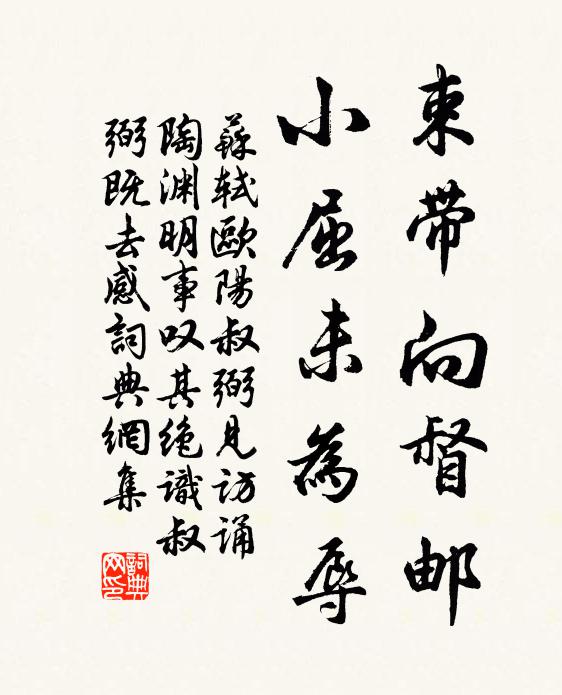 束带向督邮
小屈未為辱
蘇軾歐陽叔弼見訪誦
陶渊明事叹其绝識叔
弼既去感詞典網集
詞典網印